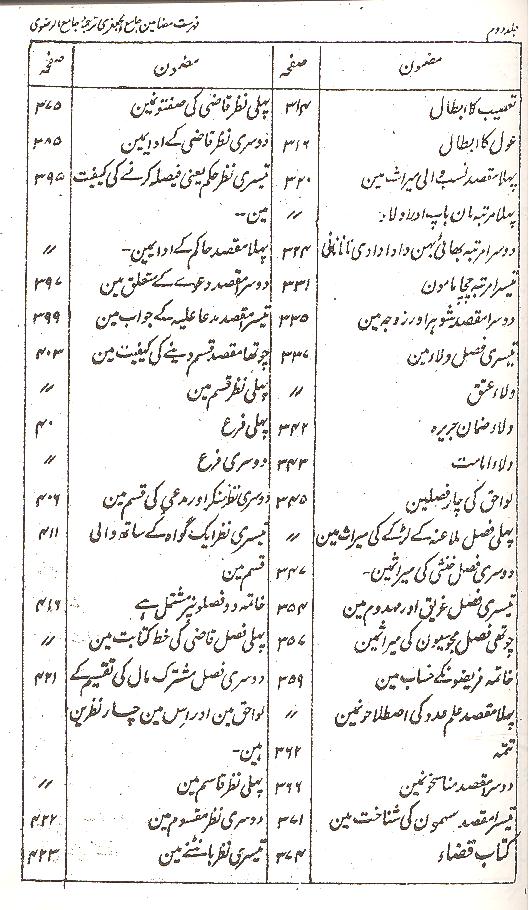 جلد دوم
فہرست مضامین جامع الجعفری ترجمۂ جامع الرضوی
مضمون صفحہ
تعصیب کا ابطال ۳۱۴
عول کا ابطال ۳۱۶
پہلا مقصد نسب والی میراث مین ۳۲۰
پہلا مرتبہ مان باپ اور اولاد ؍؍
دوسرا مرتبہ بھائی بہن دادا دادی نانا نانی ۳۲۴
تیسرا مرتبہ چچا مامون ۳۳۱
دوسرا مقصد شوہر اور زوجہ مین ۳۳۵
تیسری فصل ولاء مین ۳۳۷
ولاء عتق ؍؍
ولاء ضمان جریرہ ۳۴۲
ولاء امامت ۳۴۳
لواحق کی چار فصلین ۳۴۵
پہلی فصل ملاعنہ کے لڑکے کی میراث مین ؍؍
دوسری فصل خنثی کی میراثین۔ ۳۴۷
تیسری فصل غریق اور مہدوم مین ۳۵۴
چوتھی فصل مجوسیون کی میراثین ۳۵۷
خاتمہ فریضونکے حساب مین ۳۵۹
پہلا مقصد علم عدد کی اصطلاحونمین ؍؍
تتمہ ۳۶۲
دوسرا مقصد مناسخونمین ۳۶۶
تیسرا مقصد سہمون کی شناخت مین ۳۷۱
کتاب قضاء ۳۷۴
مضمون صفحہ
پہلی نظر قاضی کی صفتونمین ۳۷۵
دوسری نظر قاضی کے ادابمین ۳۸۵
تیسری نظر حکم یعنی فیصلہ کرنے کی کیفیت ۳۹۵
مین۔۔
پہلا مقصد حاکم کے ادابمین۔ ؍؍
دوسرا مقصد دعوے کے متعلق مین ۳۹۷
تیسرا مقصد مدعا علیہ کے جواب مین ۳۹۹
چوتھا مقصد قسم دینے کی کیفیت مین ۴۰۳
پہلی نظر قسم مین ؍؍
پہلی فرع ۴۰
دوسری فرع ؍؍
دوسری نظر منکر اور مدعی کی قسم مین ۴۰۶
تیسری نظر ایک گواہ کے ساتھ والی ۴۱۱
قسم مین
خاتمہ دو فصلونپر مشتمل ہے ۴۱۶
پہلی فصل قاضی کی خط کتابت مین ؍؍
دوسری فصل مشترک مال کی تقسیم کے ۴۲۱
لواحق مین اور اس مین چار نظرین
ہین۔
پہلی نظر قاسم مین ؍؍
دوسری نظر مقسوم مین ۴۲۲
تیسری نظر بانٹنے مین ۴۲۳